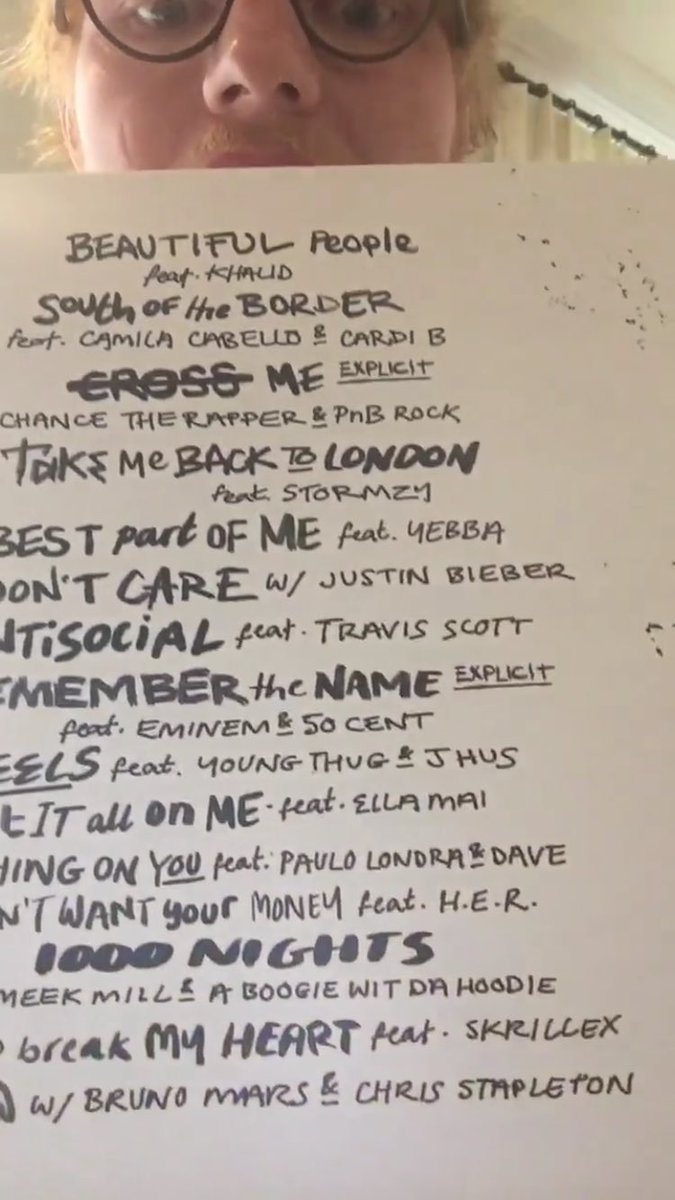 BEAUTIFUL People
feat. KHALID
South OF the BORDER
feat. CAMILA CABELLO & CARDI B
CROSS ME EXPLICIT
CHANCE THE RAPPER & PnB ROCK
TAKE Me BACK TO LONDON
feat. STORMZY
BEST part OF ME feat. YEBBA
DON'T CARE W/ JUSTIN BIEBER
NTiSOCiAL feat. TRAVIS SCOTT
EMEMBER the NAME EXPLICIT
feat. EMINEM & 50 CENT
EELS feat. YOUNG THUG & J HUS
t IT all on ME. feat. ELLA MAI
HING ON YOU feat. PAULO LONDRA & DAVE
N'T WANT your MONEY feat. H.E.R.
1000 NIGHTS
MEEK MILL & A BOOGIE WIT DA HOODIE
break MY HEART feat. SKRILLEX
W/ BRUNO MARS & CHRIS STAPLETON